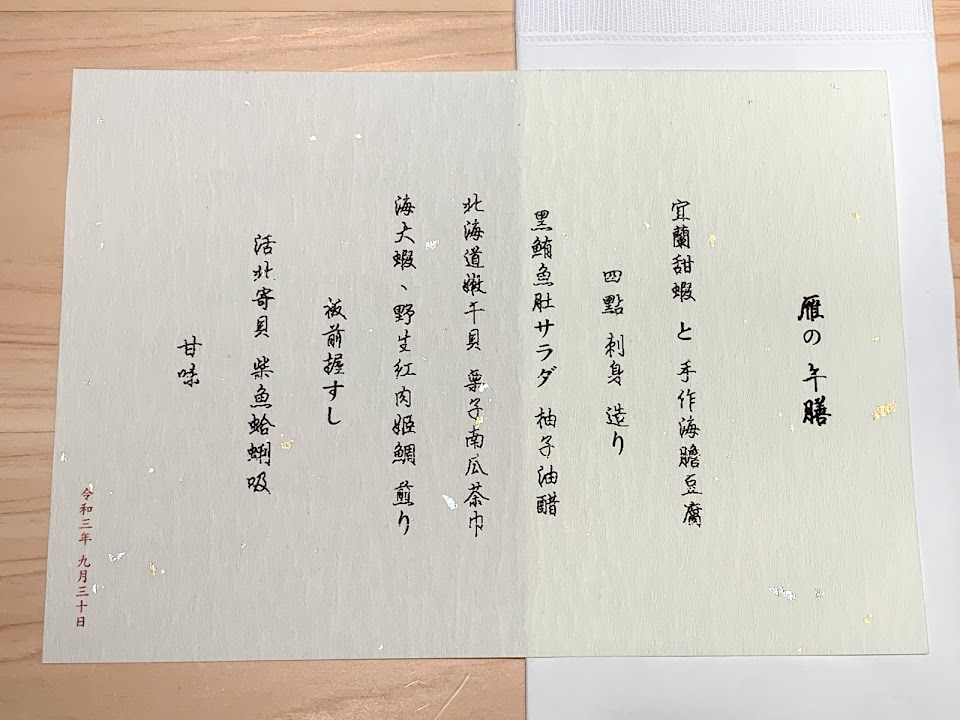 雁の 午膳
宜蘭甜蝦 と 手作海膽豆腐
四點 刺身 造り
黑鮪魚肚サラダ 柚子油醋
北海道嫩干貝 栗子南瓜茶巾
海大蝦、野生紅肉姬鯛 煎り
板前握すし
活北寄貝 柴魚蛤蜊吸
甘味
令和三年 九月三十日